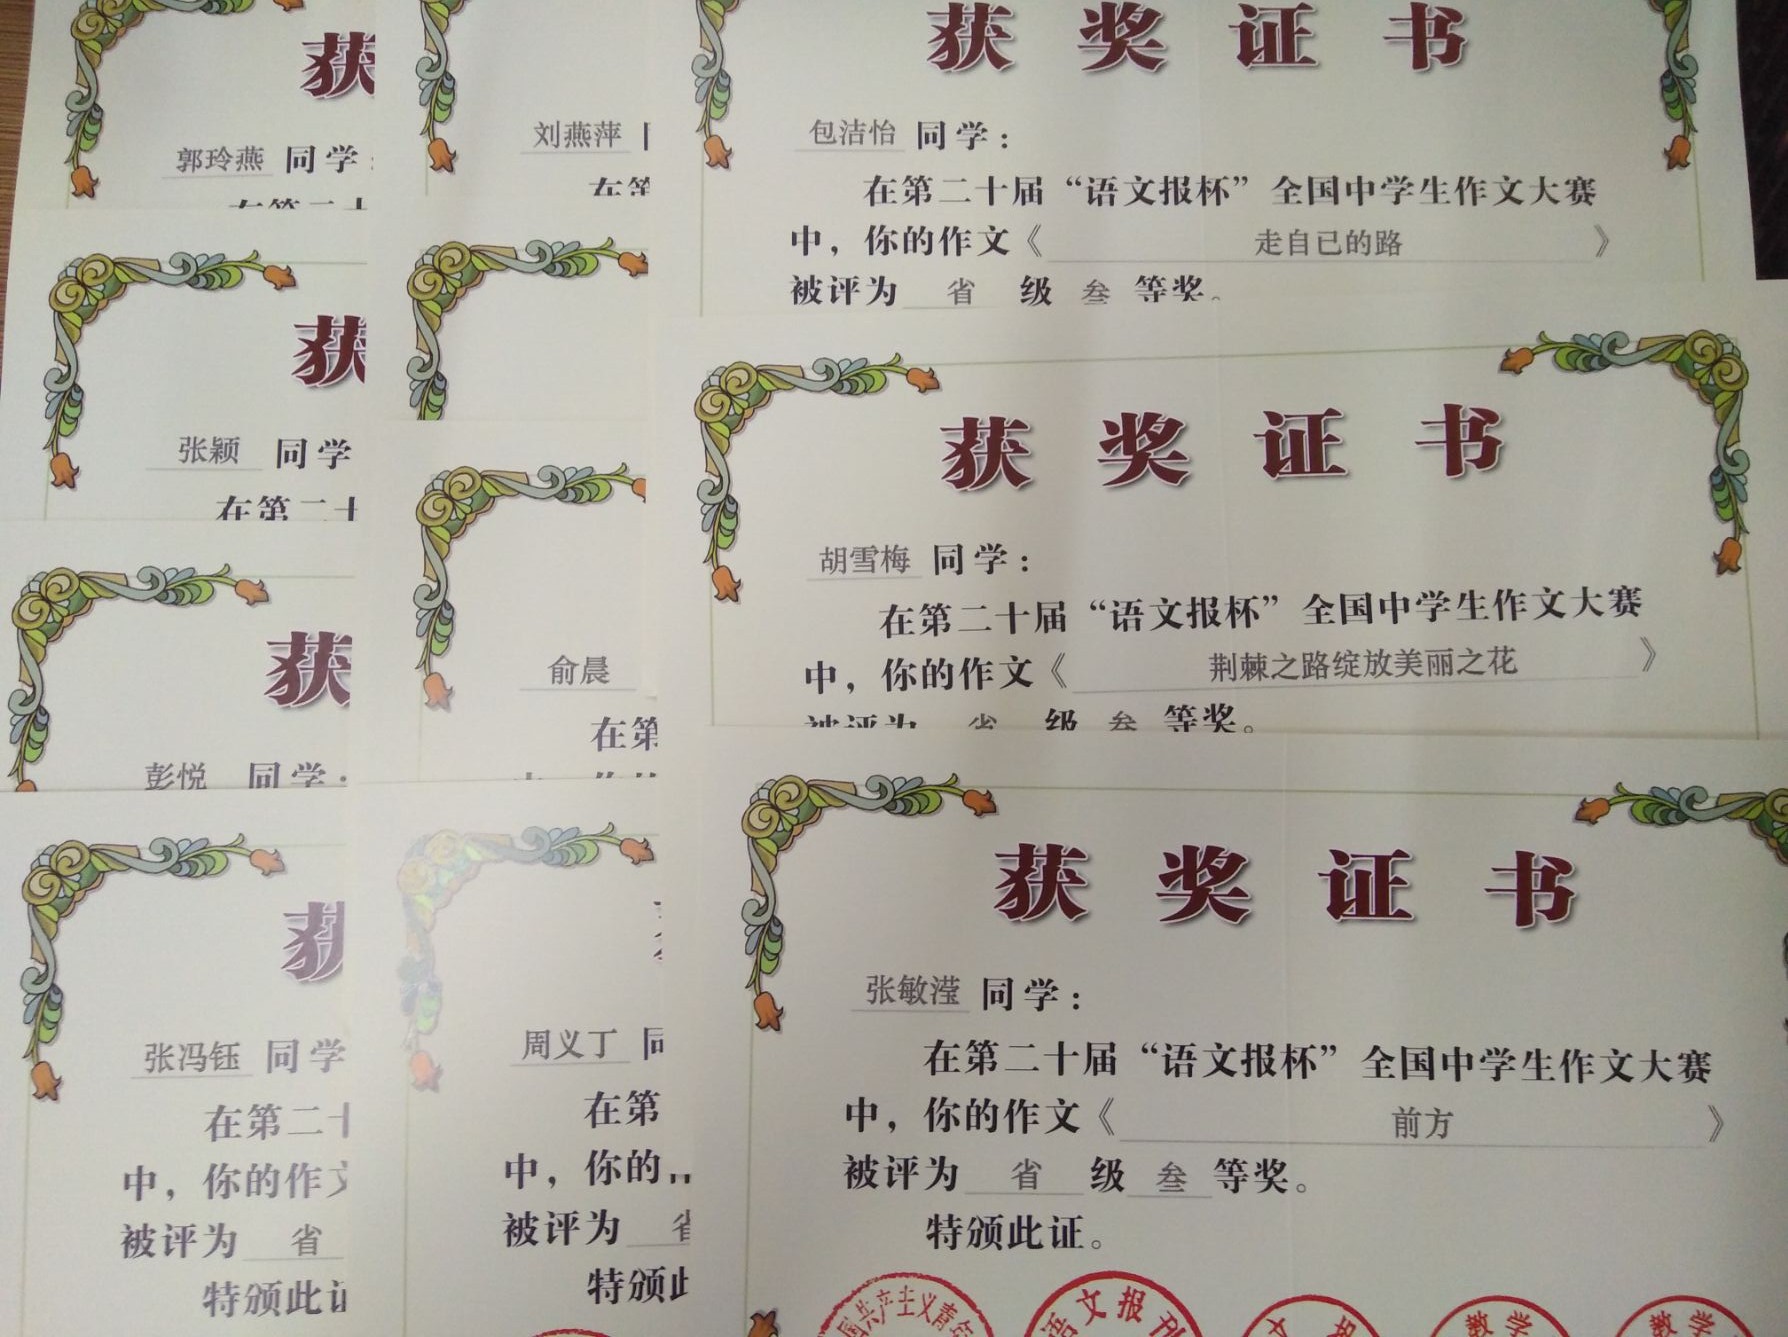 获
郭玲燕 同学:
在第二十
获
张颖 同学
在第二十
获
彭悦 同学:
获
张冯钰 同学
在第二十
中，你的作文
被评为 省
特颁此证
刘燕萍
在第
俞晨
在第
周义丁 同
在第
中，你的
被评为 省
特颁此
获奖证书
包洁怡 同学:
在第二十届“语文报杯”全国中学生作文大赛
中，你的作文《 走自己的路 》
被评为 省 级 叁 等奖。
获奖证书
胡雪梅 同学:
在第二十届“语文报杯”全国中学生作文大赛
中，你的作文《 荆棘之路绽放美丽之花 》
被评为 省 级 叁 等奖。
获奖证书
张敏滢 同学:
在第二十届“语文报杯”全国中学生作文大赛
中，你的作文《 前方 》
被评为 省 级 叁 等奖。
特颁此证。
国共产主义青年
语文报刊
文报
教学
教学